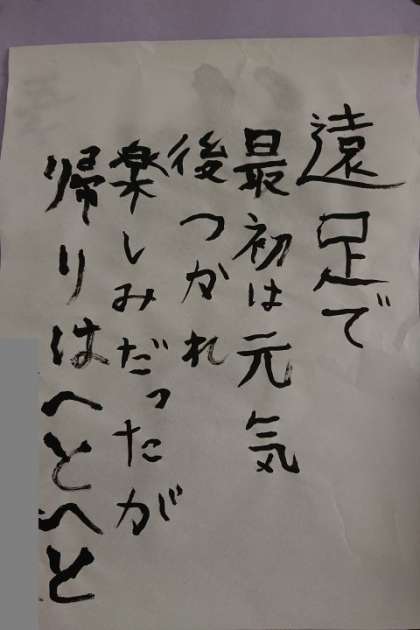 遠足で
最初は元気
後つかれ
楽しみだったが
帰りはへとへと